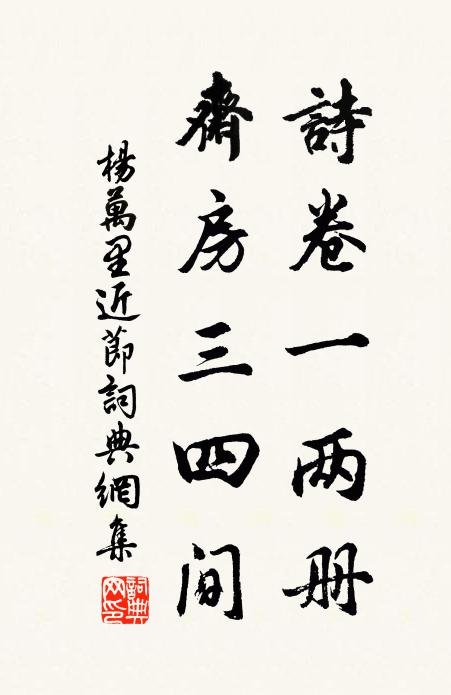 詩卷一两册
齋房三四間
楊萬里近節詞典網集
詞典网印